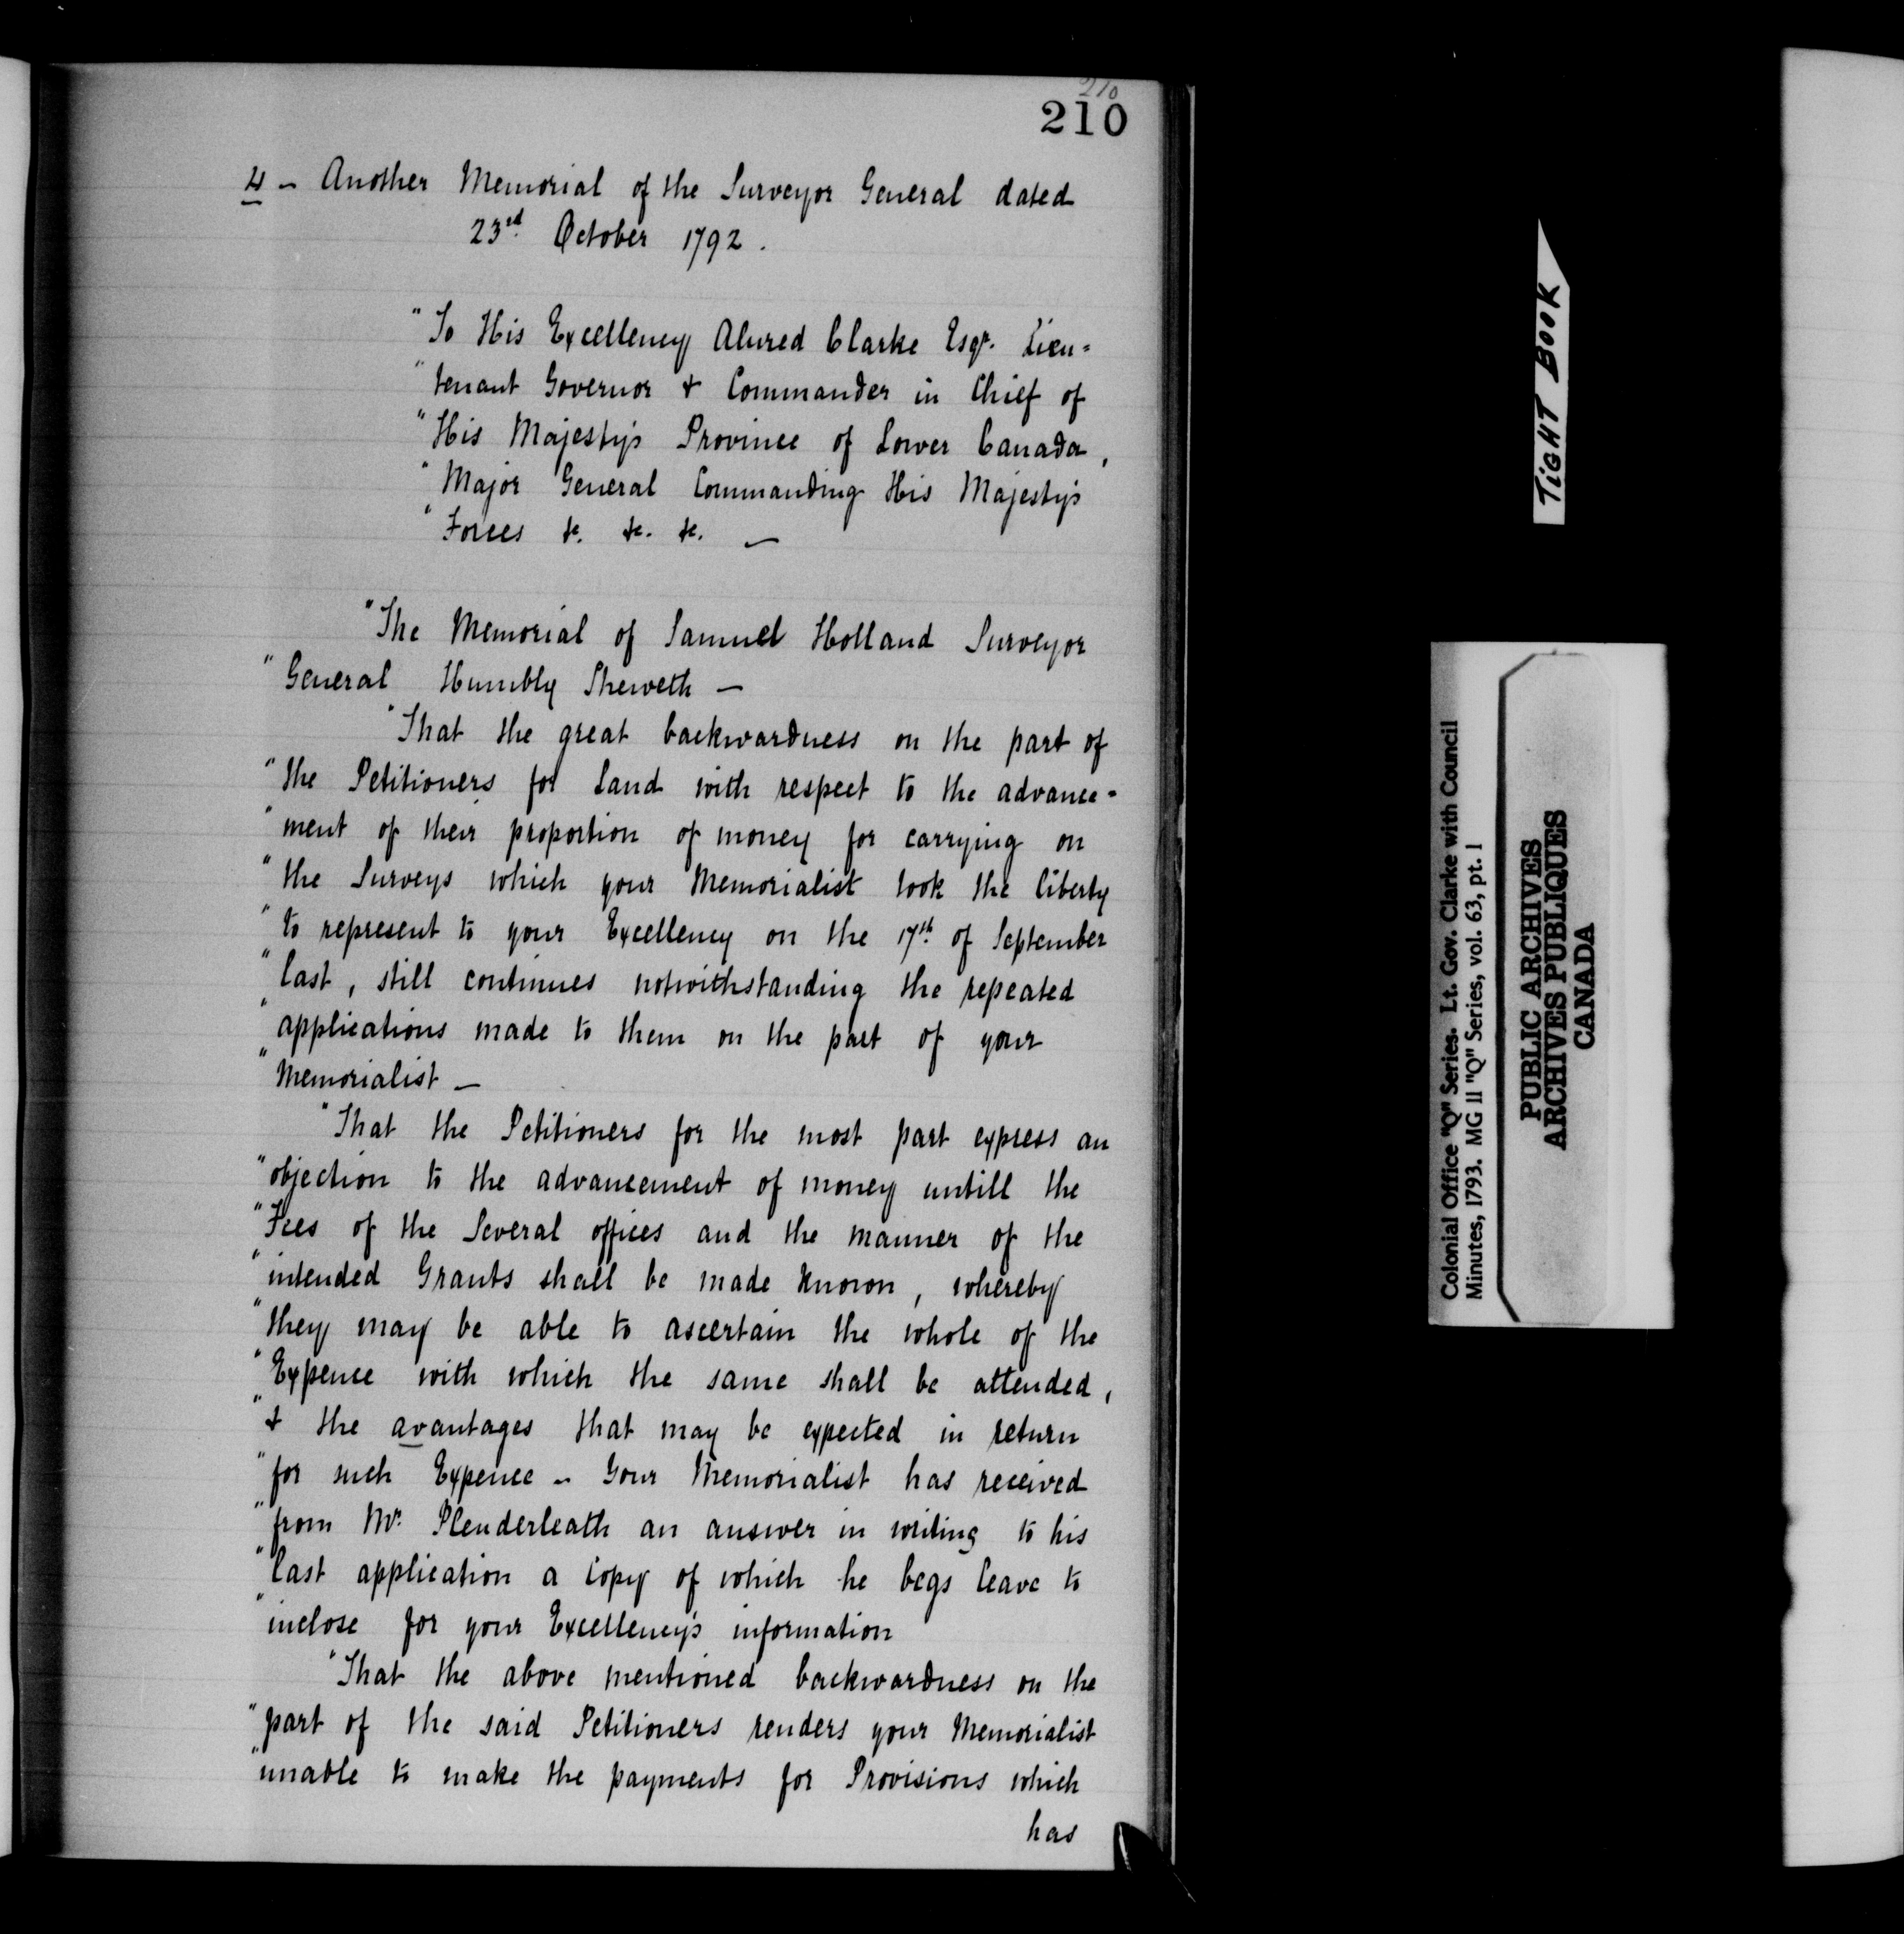 210
210
4 - Another Memorial of the Surveyor General dated
23rd October 1792.
"To His Excellency Alured Clarke Esqr. Lieu=
"tenant Governor & Commander in Chief of
"His Majesty's Province of Lower Canada,
"Major General Commanding His Majesty's
"Forces &c. &c. &c. —
"The Memorial of Samuel Holland Surveyor
"General Humbly Sheweth —
"That the great backwardness on the part of
"the Petitioners for Land with respect to the advance=
"ment of their proportion of money for carrying on
"the Surveys which your Memorialist took the liberty
"to represent to your Excellency on the 17th of September
"last, still continues notwithstanding the repeated
"applications made to them on the part of your
"Memorialist —
"That the Petitioners for the most part express an
"objection to the advancement of money untill the
"Fees of the Several offices and the manner of the
"intended Grants shall be made known, whereby
"they may be able to ascertain the whole of the
"Expence with which the same shall be attended,
"& the avantages that may be expected in return
"for such Expence - Your Memorialist has received
"from Mr. Plenderleath an answer in writing to his
"last application a Copy of which he begs leave to
"inclose for your Excellency's information
"That the above mentioned backwardness on the
"part of the said Petitioners renders your Memorialist
"unable to make the payments for Provisions which
has
TIGHT BOOK
Colonial Office "Q" Series. Lt. Gov. Clarke with Council
Minutes, 1793. MG 11 "Q" Series, vol. 63, pt. 1
PUBLIC ARCHIVES
ARCHIVES PUBLIQUES
CANADA